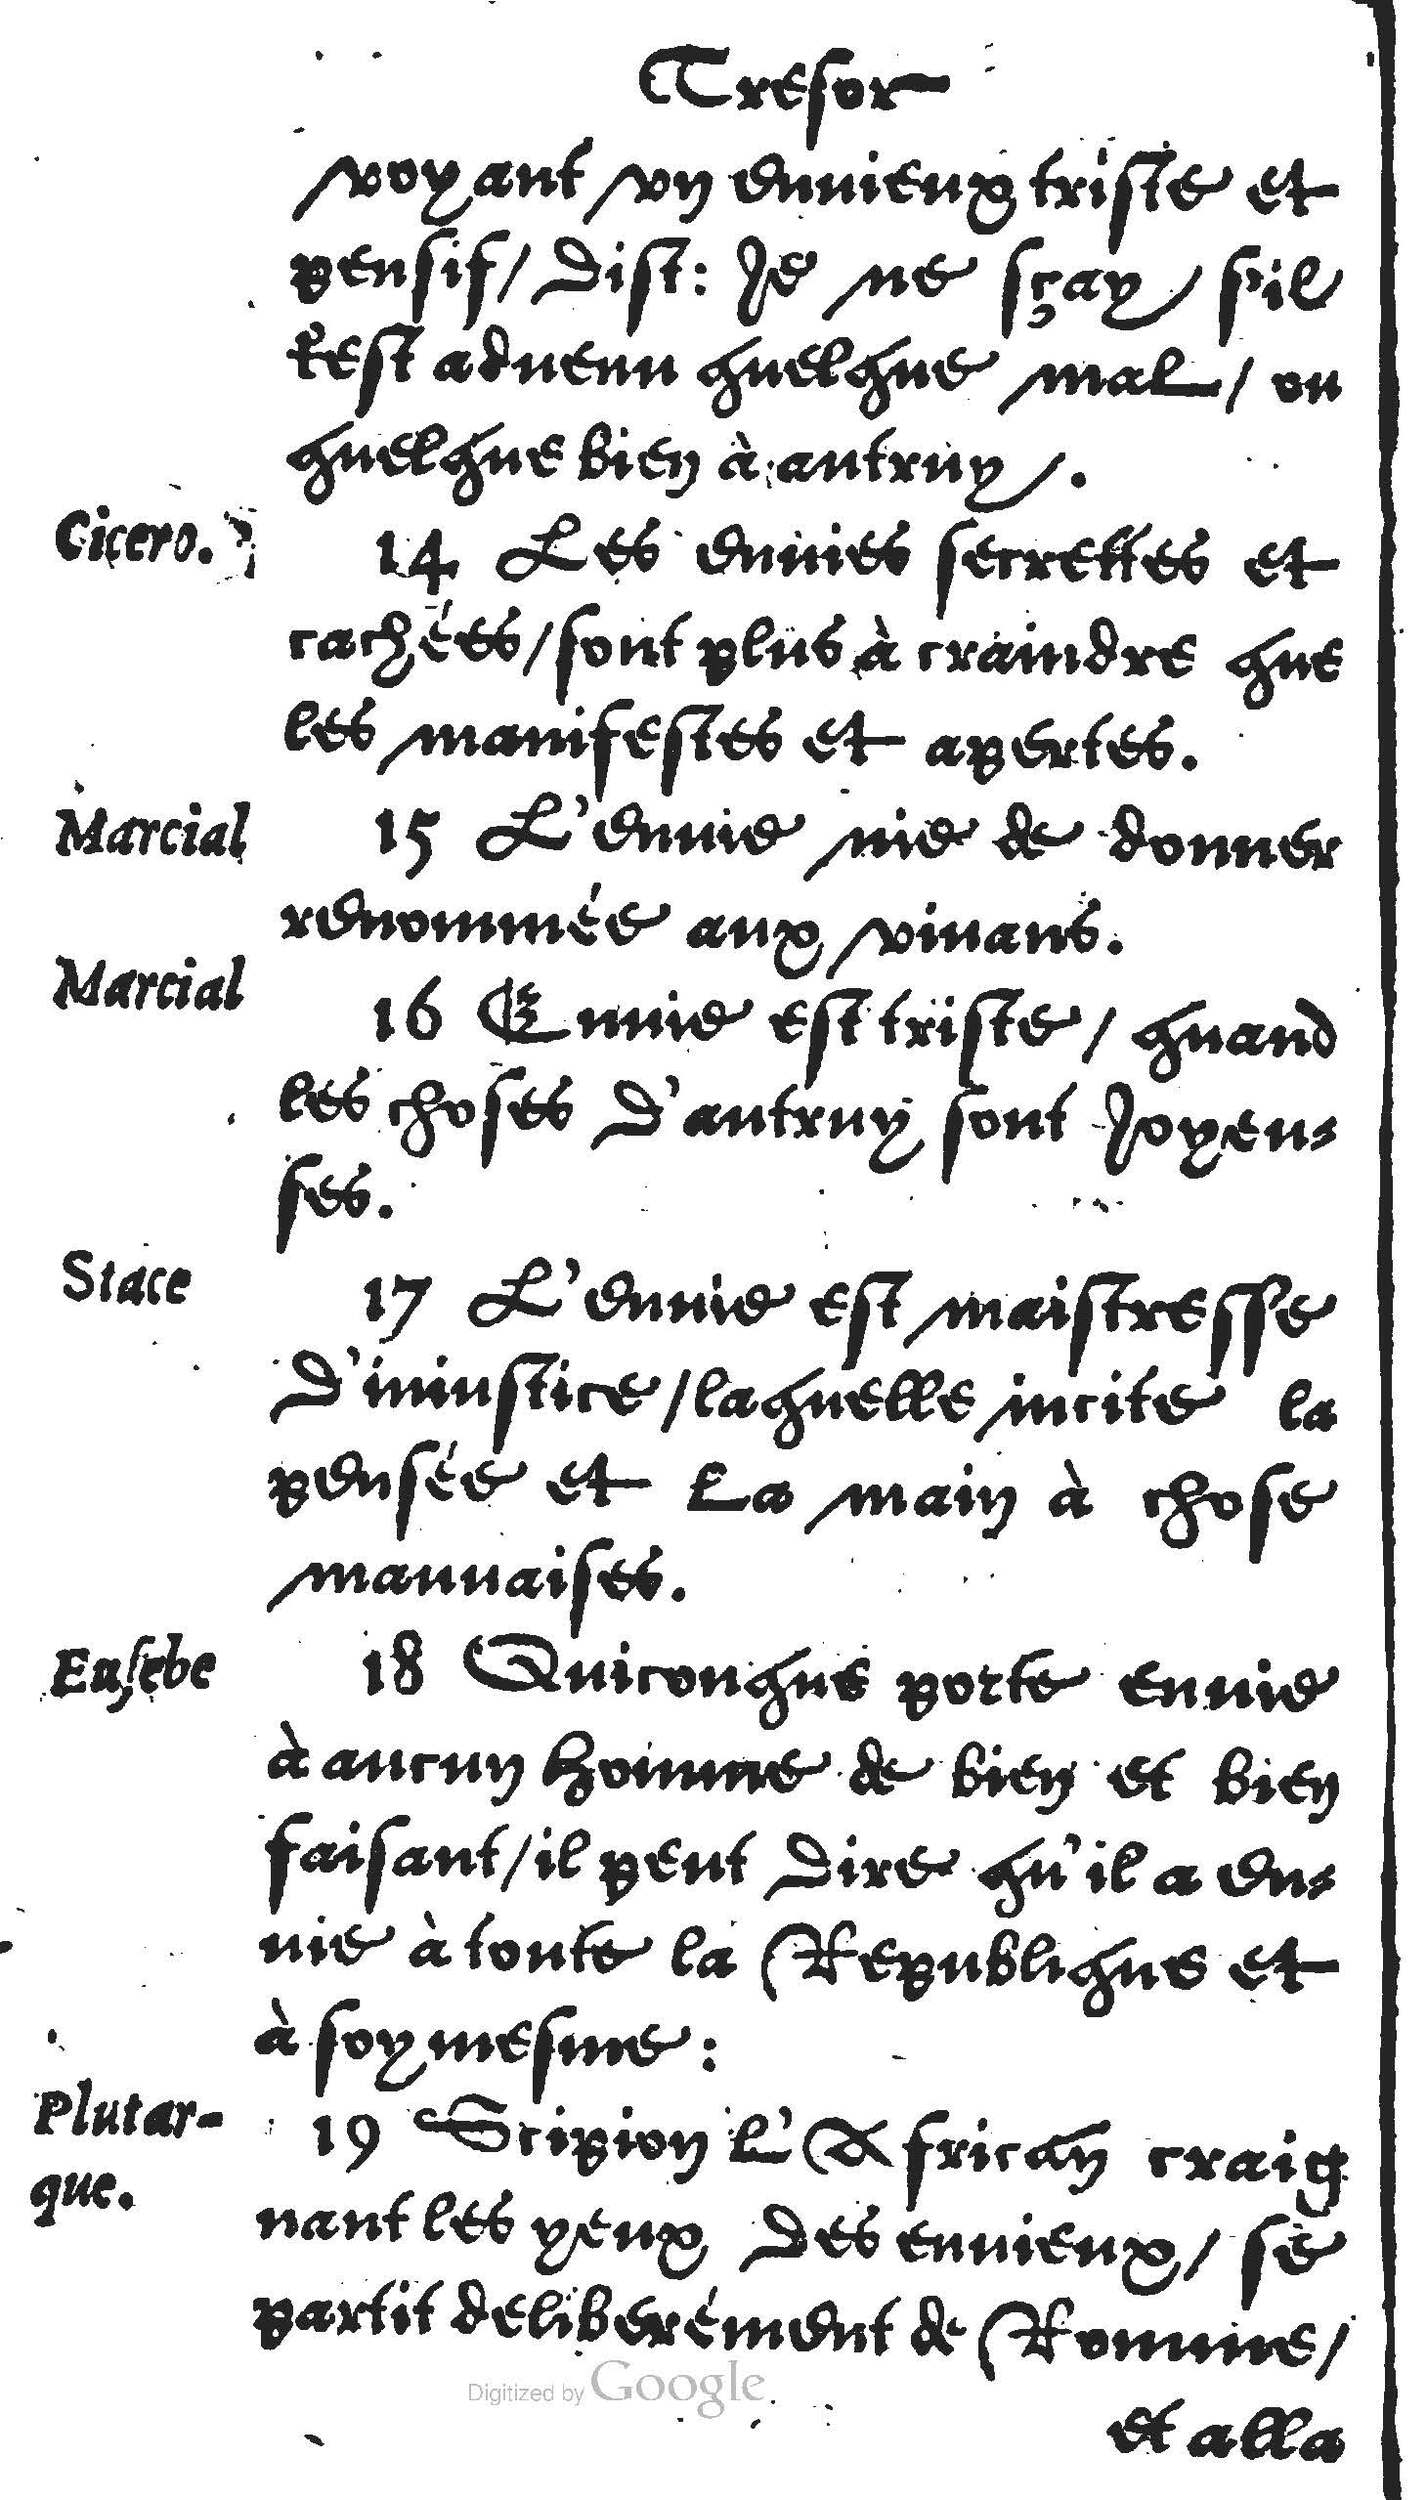 Tresor
voyant vn enuieux triste et
pensif/ dist: Je ne sçay/ s'il
t'est aduenu quelque mal/ ou
quelque bien à autruy.
Cicero.
14 Les enuies secrettes et
cachées/ sont plus à craindre que
les manifestes et apertes.
Marcial
15 L'enuie nie de donner
renommée aux viuans.
Marcial
16 Enuie est triste/ quand
les choses d'autruy sont Joyeu-
ses.
Stace
17 L'enuie est maistresse
d'iniustice/ laquelle incite la
pensée et la main à chose
mauuaises.
Eusebe
18 Quiconque porte enuie
à aucun homme de bien et bien
faisant/ il peut dire qu'il a en-
uie à toute la Republique et
à soymesme:
Plutar-
que.
19 Scipion l'African craig
nant les yeux des enuieux/ se
partit deliberément de Romme/
et alla
Digitized by Google